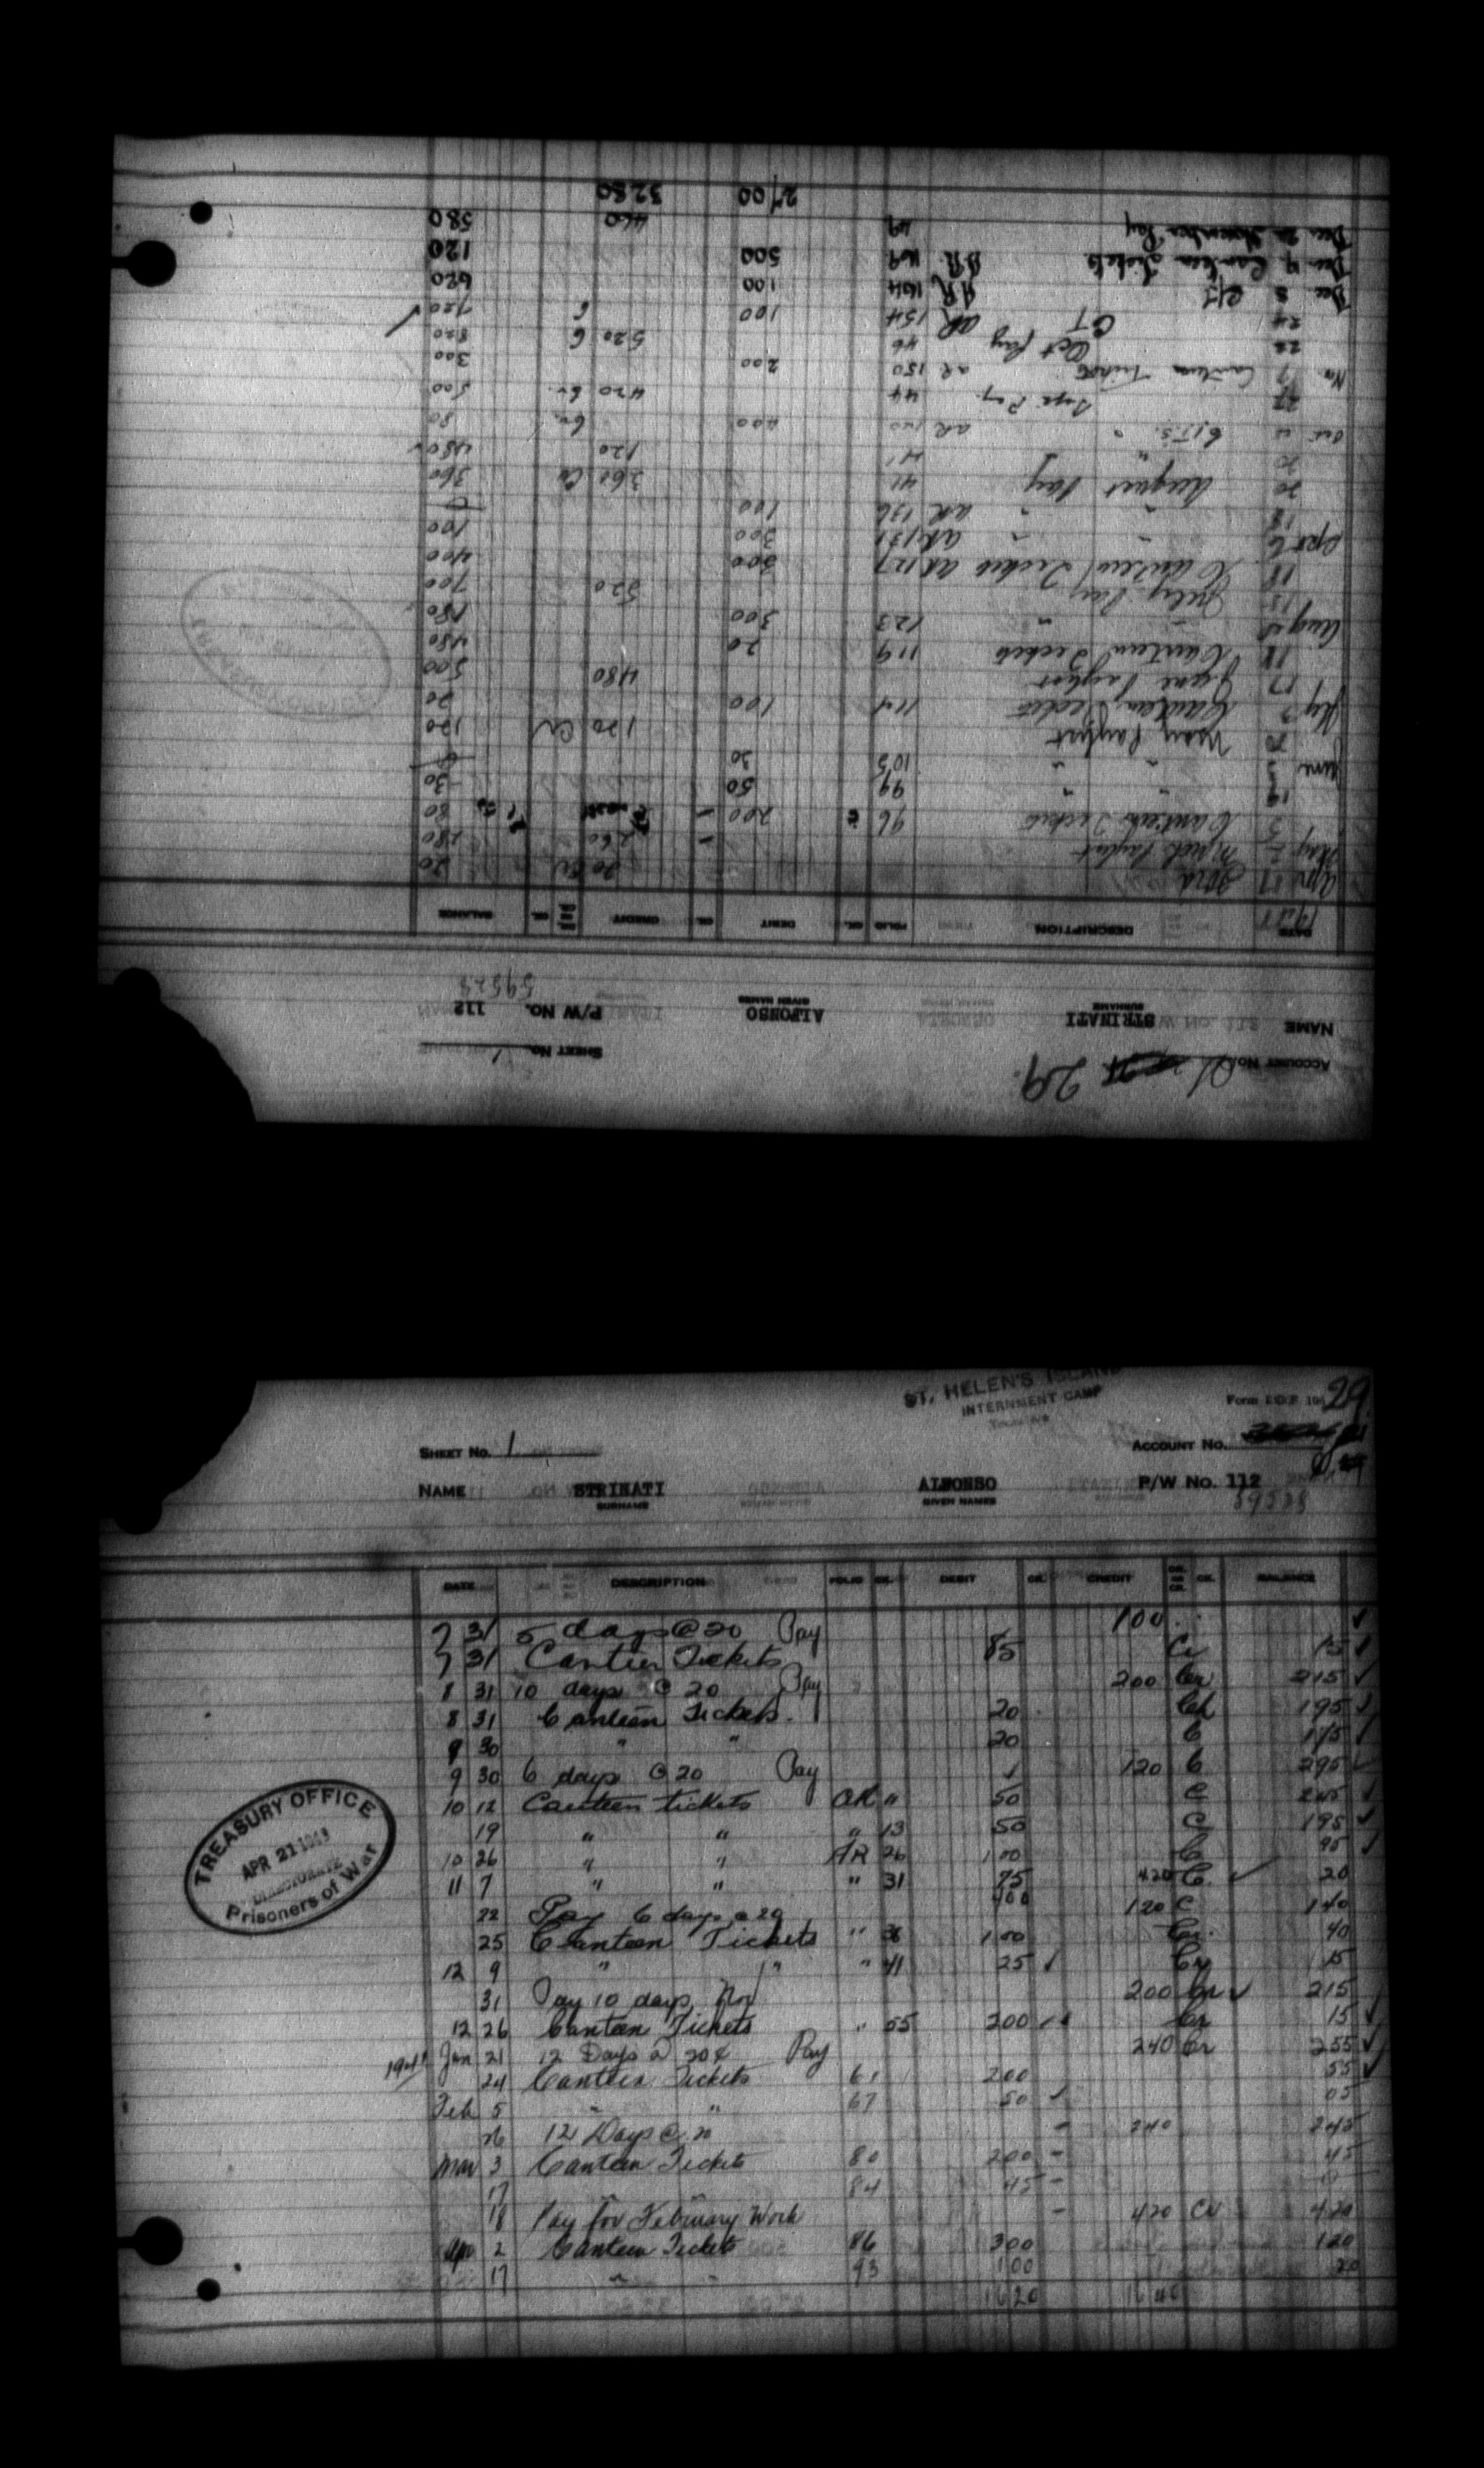 ACCOUNT No. 29
SHEET No. 1
NAME STRINATI ALFONSO P/W No. 112
SURNAME GIVEN NAMES
59528
DATE DESCRIPTION FOLIO CK. DEBIT CK. CREDIT CK. BALANCE
1941
Apr 17 Fwd 20 Cr 20
May 2 March Paylist 260 280
5 Canteen Tickets 96 200 80
19 " " 99 50 30
June 5 " " 105 30 0
20 May Paylist 120 Cr 120
July 3 Canteen Tickets 114 100 20
17 June Paylist 480 500
18 Canteen Tickets 119 20 480
Aug 5 " " 123 300 180
15 July Pay 520 700
18 Canteen Tickets AR 127 300 400
Sept 6 " " AR 131 300 100
18 " " AR 136 100 0
20 August Pay 41 360 Cr 360
20 " " 41 120 480
Oct 2 C.T's. " AR 140 400 Cr 80
27 Sept. Pay 44 420 Cr. 500
Nov 7 Canteen Tickets AR 150 200 300
22 Oct Pay 46 520 C 820
24 CT AR 154 100 C 720
Dec 8 CT AR 164 100 620
Dec 19 Canteen Tickets AR 169 500 120
Dec 20 November Pay 49 460 580
2700 3280
ST. HELEN'S ISLAND
INTERNMENT CAMP
Form 29
SHEET No. 1 ACCOUNT No.
NAME STRINATI ALFONSO P/W No. 112
SURNAME GIVEN NAMES
59528
DATE DESCRIPTION FOLIO CK. DEBIT CK. CREDIT CK. BALANCE
7 31 5 days @ 20 Pay 100
7 31 Canteen Tickets 85 Cr 15
8 31 10 days @ 20 Pay 200 Cr 215
8 31 Canteen Tickets. 20 Cr 195
9 30 " " 20 C 175
9 30 6 days @ 20 Pay 120 C 295
10 12 Canteen tickets AR " 50 C 245
19 " " " 13 50 C 195
10 26 " " AR 26 100 C 95
11 7 " " " 31 75 420 C. 20
400
22 Pay 6 days @ 20 120 C 140
25 Canteen Tickets " 36 100 Cr. 40
12 9 " " " 41 25 Cr 15
31 Pay 10 days Nov 200 Cr 215
12 26 Canteen Tickets " 55 200 Cr 15
1941 Jan 21 12 Days @ 20¢ Pay 240 Cr 255
24 Canteen Tickets 61 200 55
Feb 5 " " 67 50 05
26 12 Days @ 20 240 245
Mar 3 Canteen Tickets 80 200 45
17 " " 84 45 0
18 Pay for February Work 420 Cr 420
Apr 2 Canteen Tickets 86 300 120
17 " " 93 100 20
1620 1640
TREASURY OFFICE
APR 21
DIRECTORATE
Prisoners of War